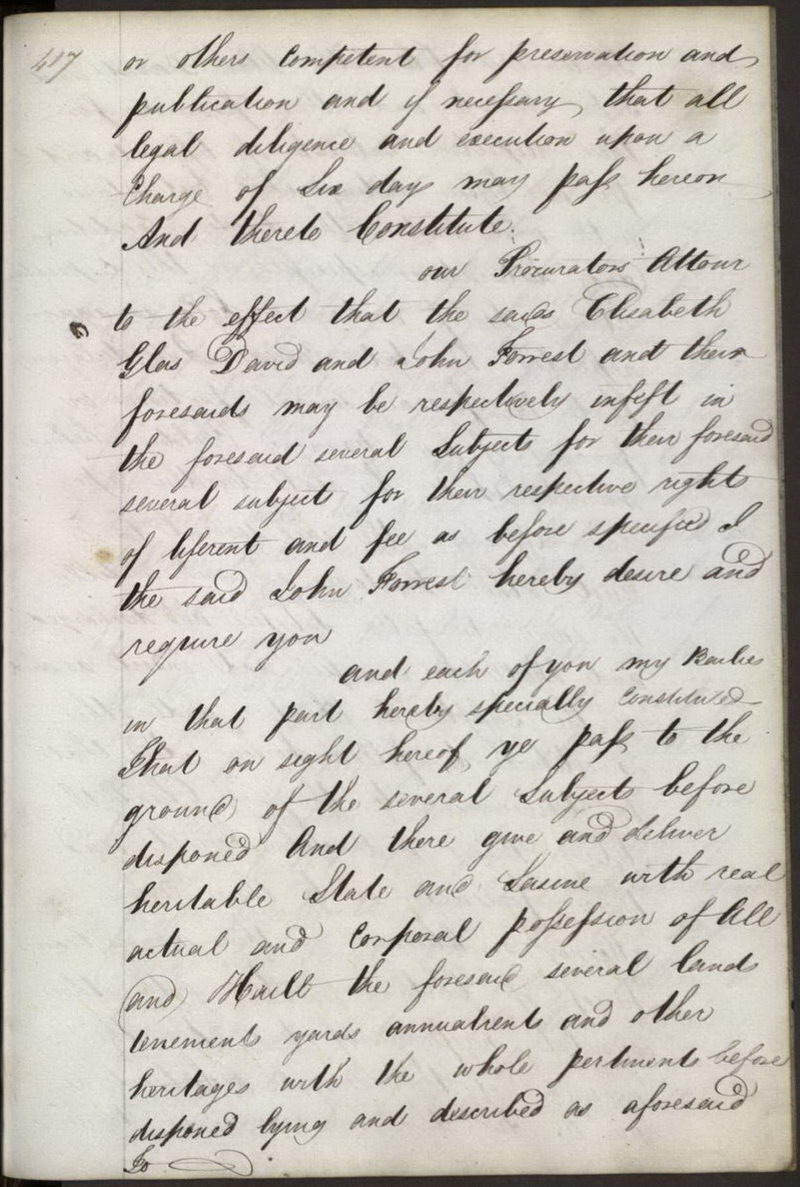 or others Competent for preservation and
publication and if necessary that all
legal diligence and execution upon a
Charge of Six days may pass hereon
And thereto Constitute
our Procurators Attour
to the effect that the saids Elisabeth
Glas David and John Forrest and their
foresaids may be respectively infeft in
the foresaid several Subjects for their foresaid
several subject for their respective rights
of liferent and fee as before specified I
the said John Forrest hereby desire and
require you
and each of you my Bailies
in that part hereby specially Constituted
That on sight hereof ye pass to the
ground of the several Subjects before
disponed And there give and deliver
heritable State and Sasine with real
actual and Corporal possession of All
and Haill the foresaid several lands
tenements yards annualrents and other
heritages with the whole pertinents before
disponed lying and described as aforesaid
To